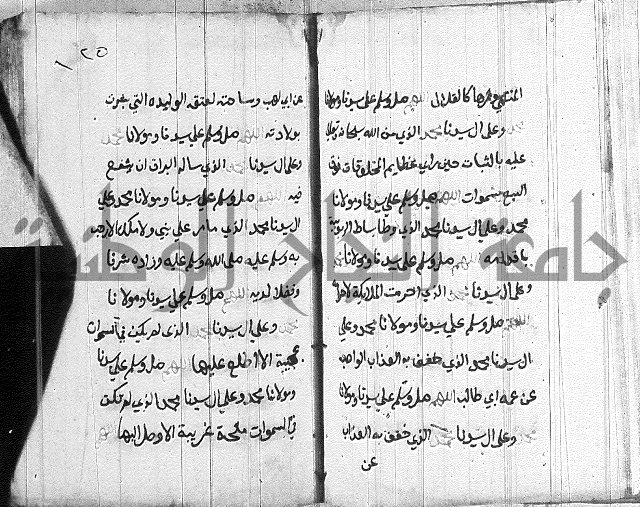 المنتهى وثمرها كالقلال اللهم صل وسلم على سيدنا ومولانا
محمد وعلى ال سيدنا محمد الذي من الله سبحانه وتعالى
عليه بالثبات حين راى عظايم المخلوقات فوق
السبع سموات اللهم صل وسلم على سيدنا ومولانا
محمد وعلى ال سيدنا محمد الذي وطا بساط الربوبية
باقدامه اللهم صل وسلم على سيدنا ومولانا محمد
وعلى ال سيدنا محمد الذي احرمت الملايكة
اللهم صل وسلم على سيدنا ومولانا محمد وعلى
ال سيدنا محمد الذي خفف به العذاب الواصب
عن عمه ابي طالب اللهم صل وسلم على سيدنا ومولانا
محمد وعلى ال سيدنا محمد الذي خفف به العذاب
عن
١٢٥
عن ابي لهب وساعته لعتقه الوليده التي بشرت
بولادته اللهم صل وسلم على سيدنا ومولانا محمد
وعلى ال سيدنا محمد الذي ساله البراق ان يشفع
فيه اللهم صل وسلم على سيدنا ومولانا محمد وعلى
ال سيدنا محمد الذي ما مر على نبي ولا ملك الا رحب
به وسلم عليه صلى الله وسلم عليه وزاده شرفا
وفضلا لديه اللهم صل وسلم على سيدنا ومولانا
محمد وعلى ال سيدنا محمد الذي لم يكن في السموات
عجيبة الا اطلع عليها اللهم صل وسلم على سيدنا
ومولانا محمد وعلى ال سيدنا محمد الذي لم تكن
في السموات ملحة غريبة الا وصل اليها اللهم
جامعة النجاح الوطنية